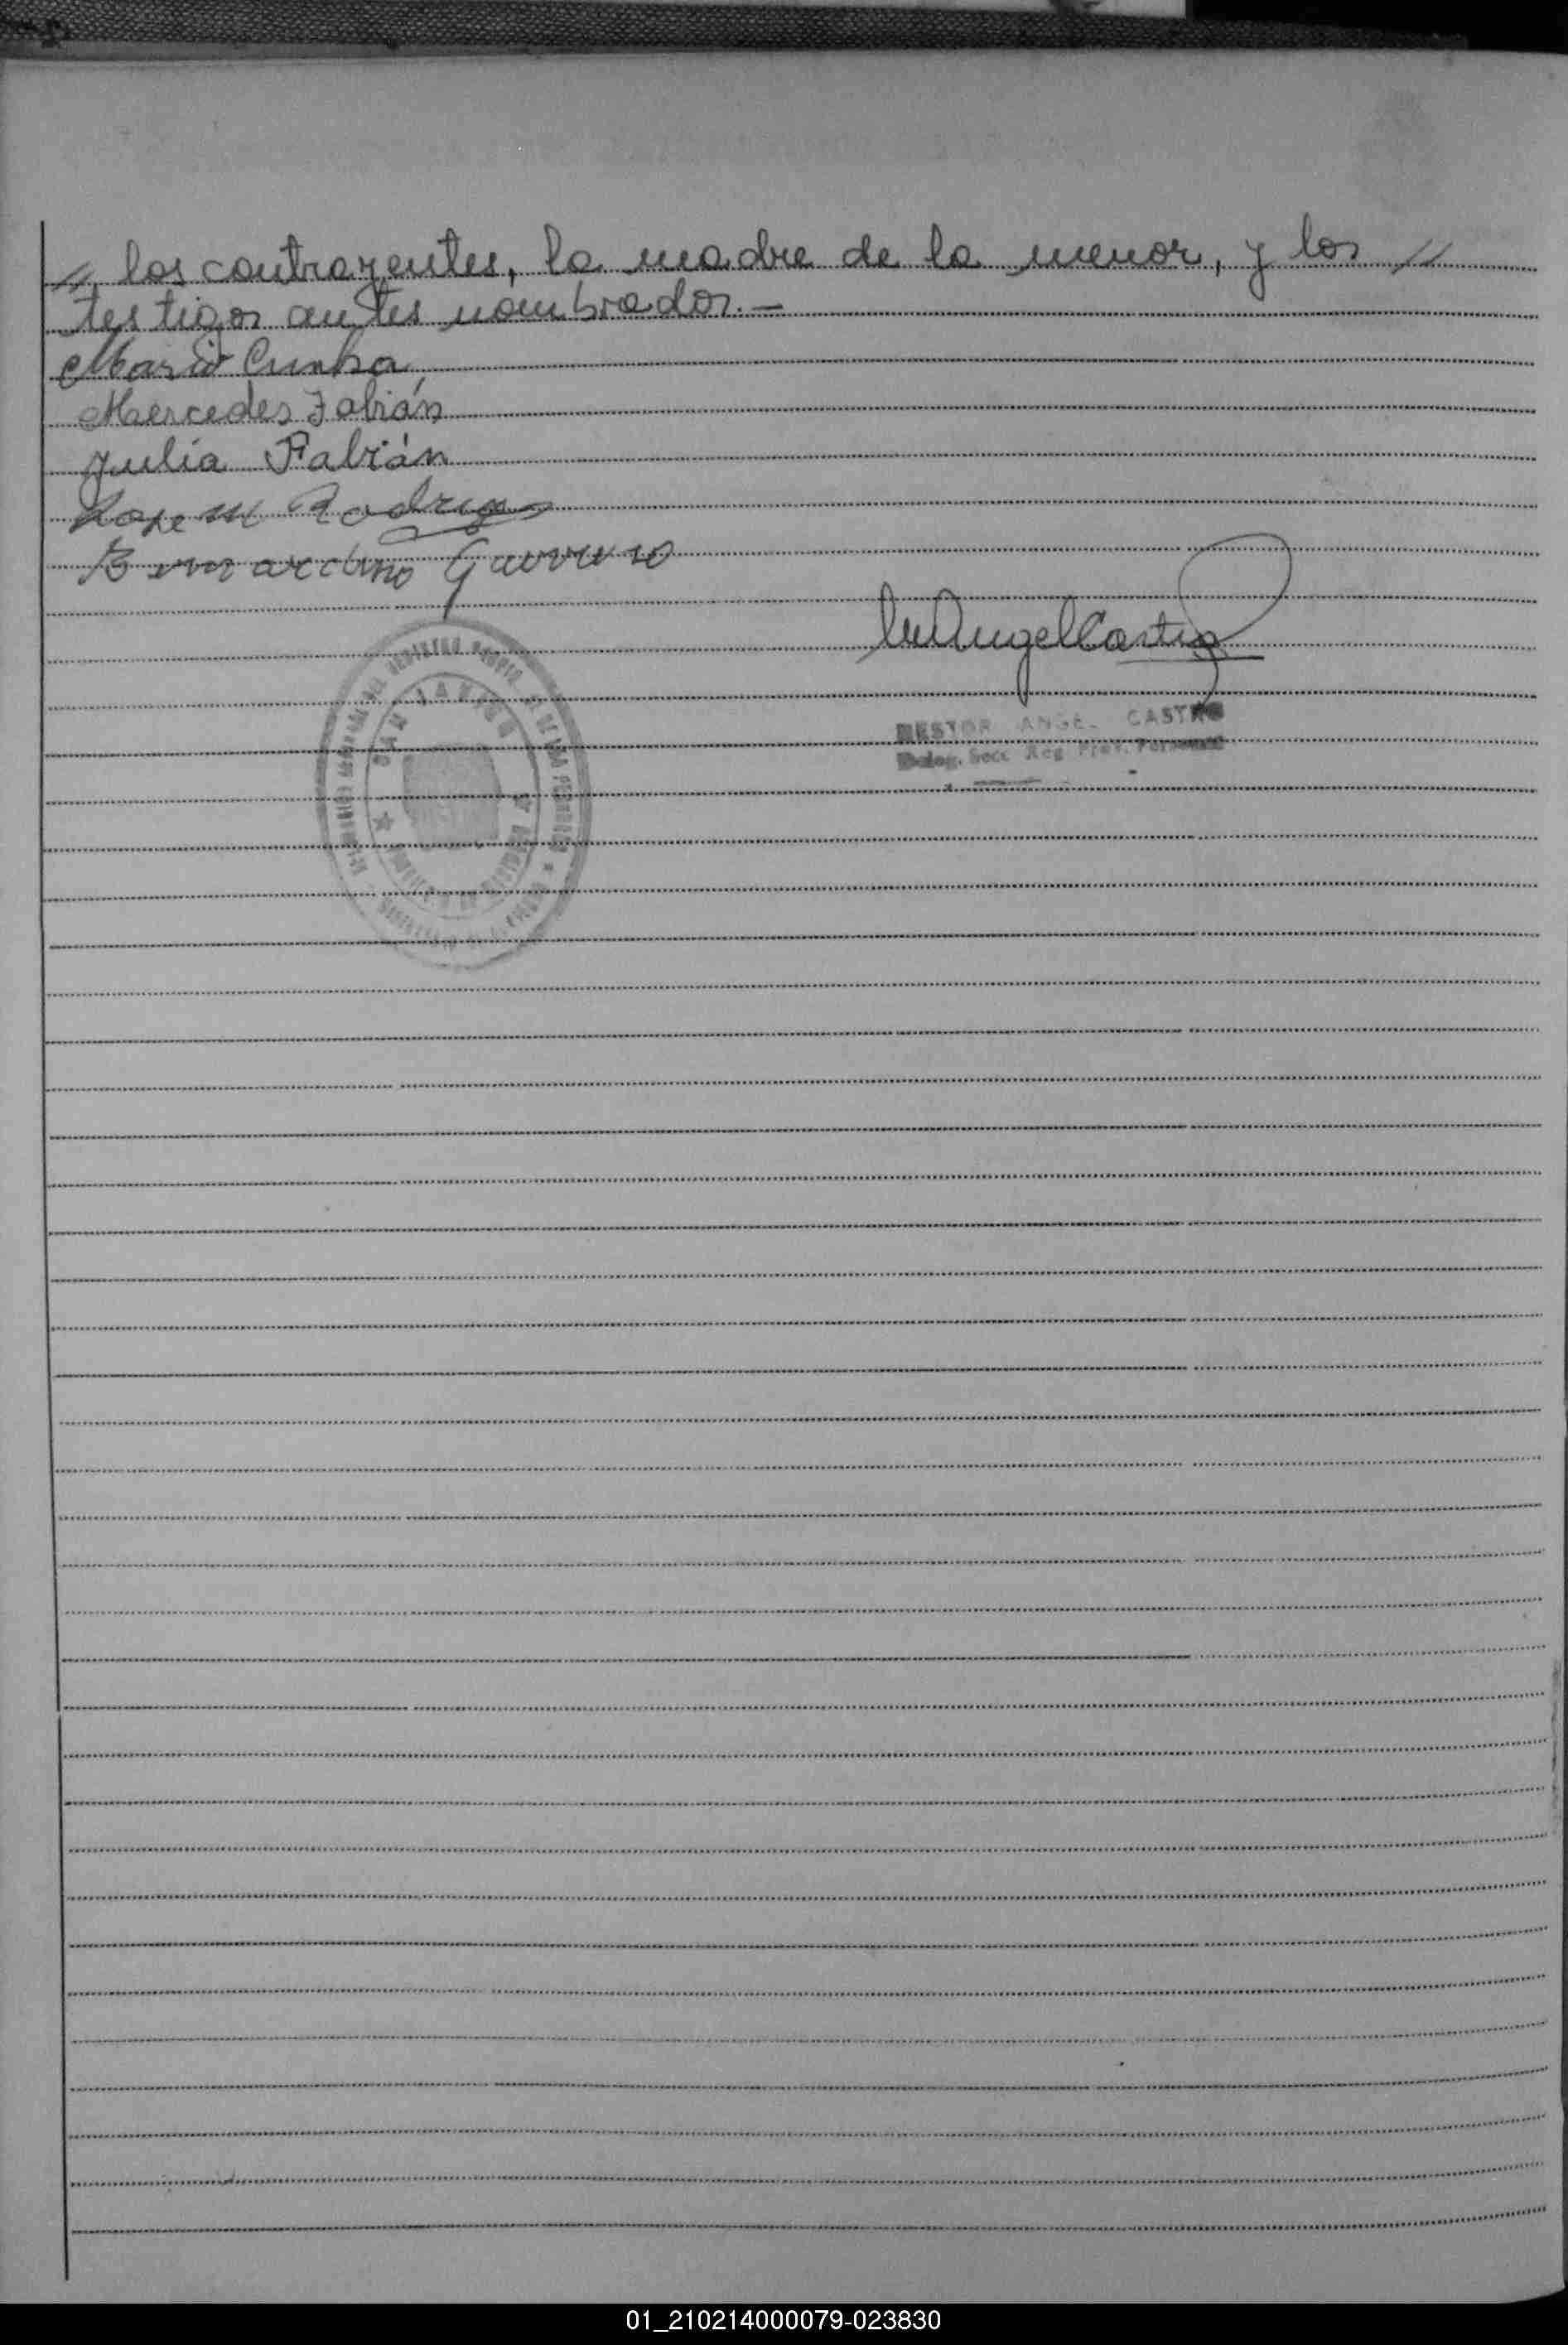 // los contrayentes, la madre de la menor, y los //
testigos antes nombrados.—
Mario Cunha
Mercedes Fabián
Julia Fabián
Jose M Rodrig
Bernardino
NESTOR ANGEL CASTRO
Deleg. Secc. Reg. Prov. Personas
SAN JAVIER
01_210214000079-023830